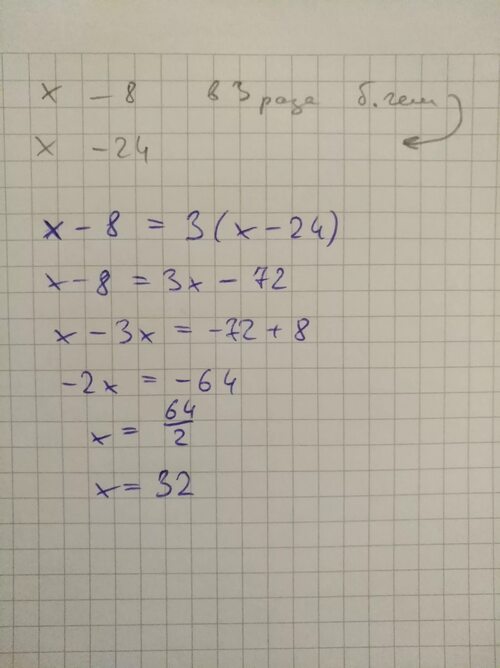 x - 8 в 3 раза б. чем
x - 24
x - 8 = 3(x - 24)
x - 8 = 3x - 72
x - 3x = -72 + 8
-2x = -64
x = 64/2
x = 32